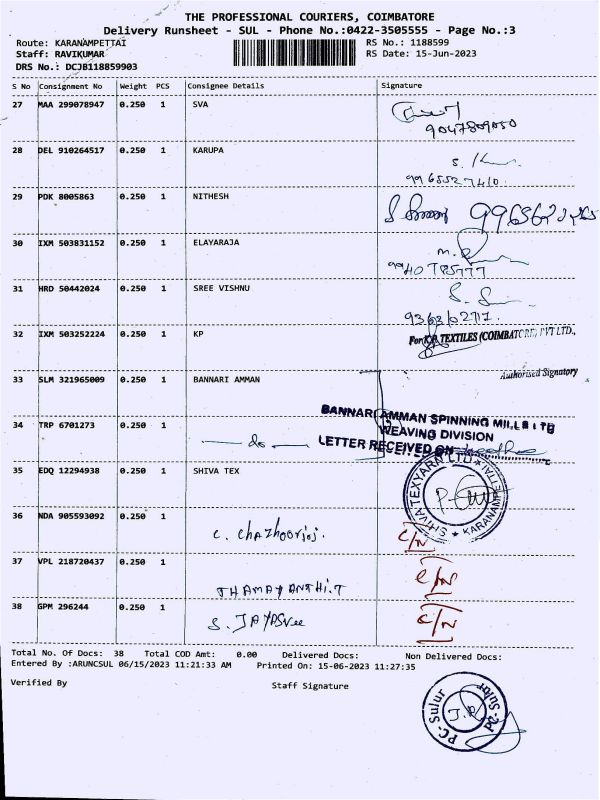 THE PROFESSIONAL COURIERS, COIMBATORE
Delivery Runsheet - SUL - Phone No.:0422-3505555 - Page No.:3
Route: KARANAMPETTAI RS No.: 1188599
Staff: RAVIKUMAR RS Date: 15-Jun-2023
DRS No.: DCJB118859903
S No Consignment No Weight PCS Consignee Details Signature
27 MAA 299078947 0.250 1 SVA
28 DEL 910264517 0.250 1 KARUPA
29 PDK 8005863 0.250 1 NITHESH
30 IXM 503831152 0.250 1 ELAYARAJA
31 HRD 50442024 0.250 1 SREE VISHNU
32 IXM 503252224 0.250 1 KP
For K.P. TEXTILES (COIMBATORE) PVT LTD.,
Authorised Signatory
33 SLM 321965009 0.250 1 BANNARI AMMAN
BANNARI AMMAN SPINNING MILLS LTD
34 TRP 6701273 0.250 1 WEAVING DIVISION
— do — LETTER RECEIVED ON
35 EDQ 12294938 0.250 1 SHIVA TEX
SHIVA TEXYARN LTD ★ KARANAMPETTAI ★
36 NDA 905593092 0.250 1
C/N
37 VPL 218720437 0.250 1
THAMAYANTHI.T C/N
38 GPM 296244 0.250 1
S. JAYASree C/N
Total No. Of Docs: 38 Total COD Amt: 0.00 Delivered Docs: Non Delivered Docs:
Entered By :ARUNCSUL 06/15/2023 11:21:33 AM Printed On: 15-06-2023 11:27:35
Verified By Staff Signature
PC-Sulur PC-Sulur